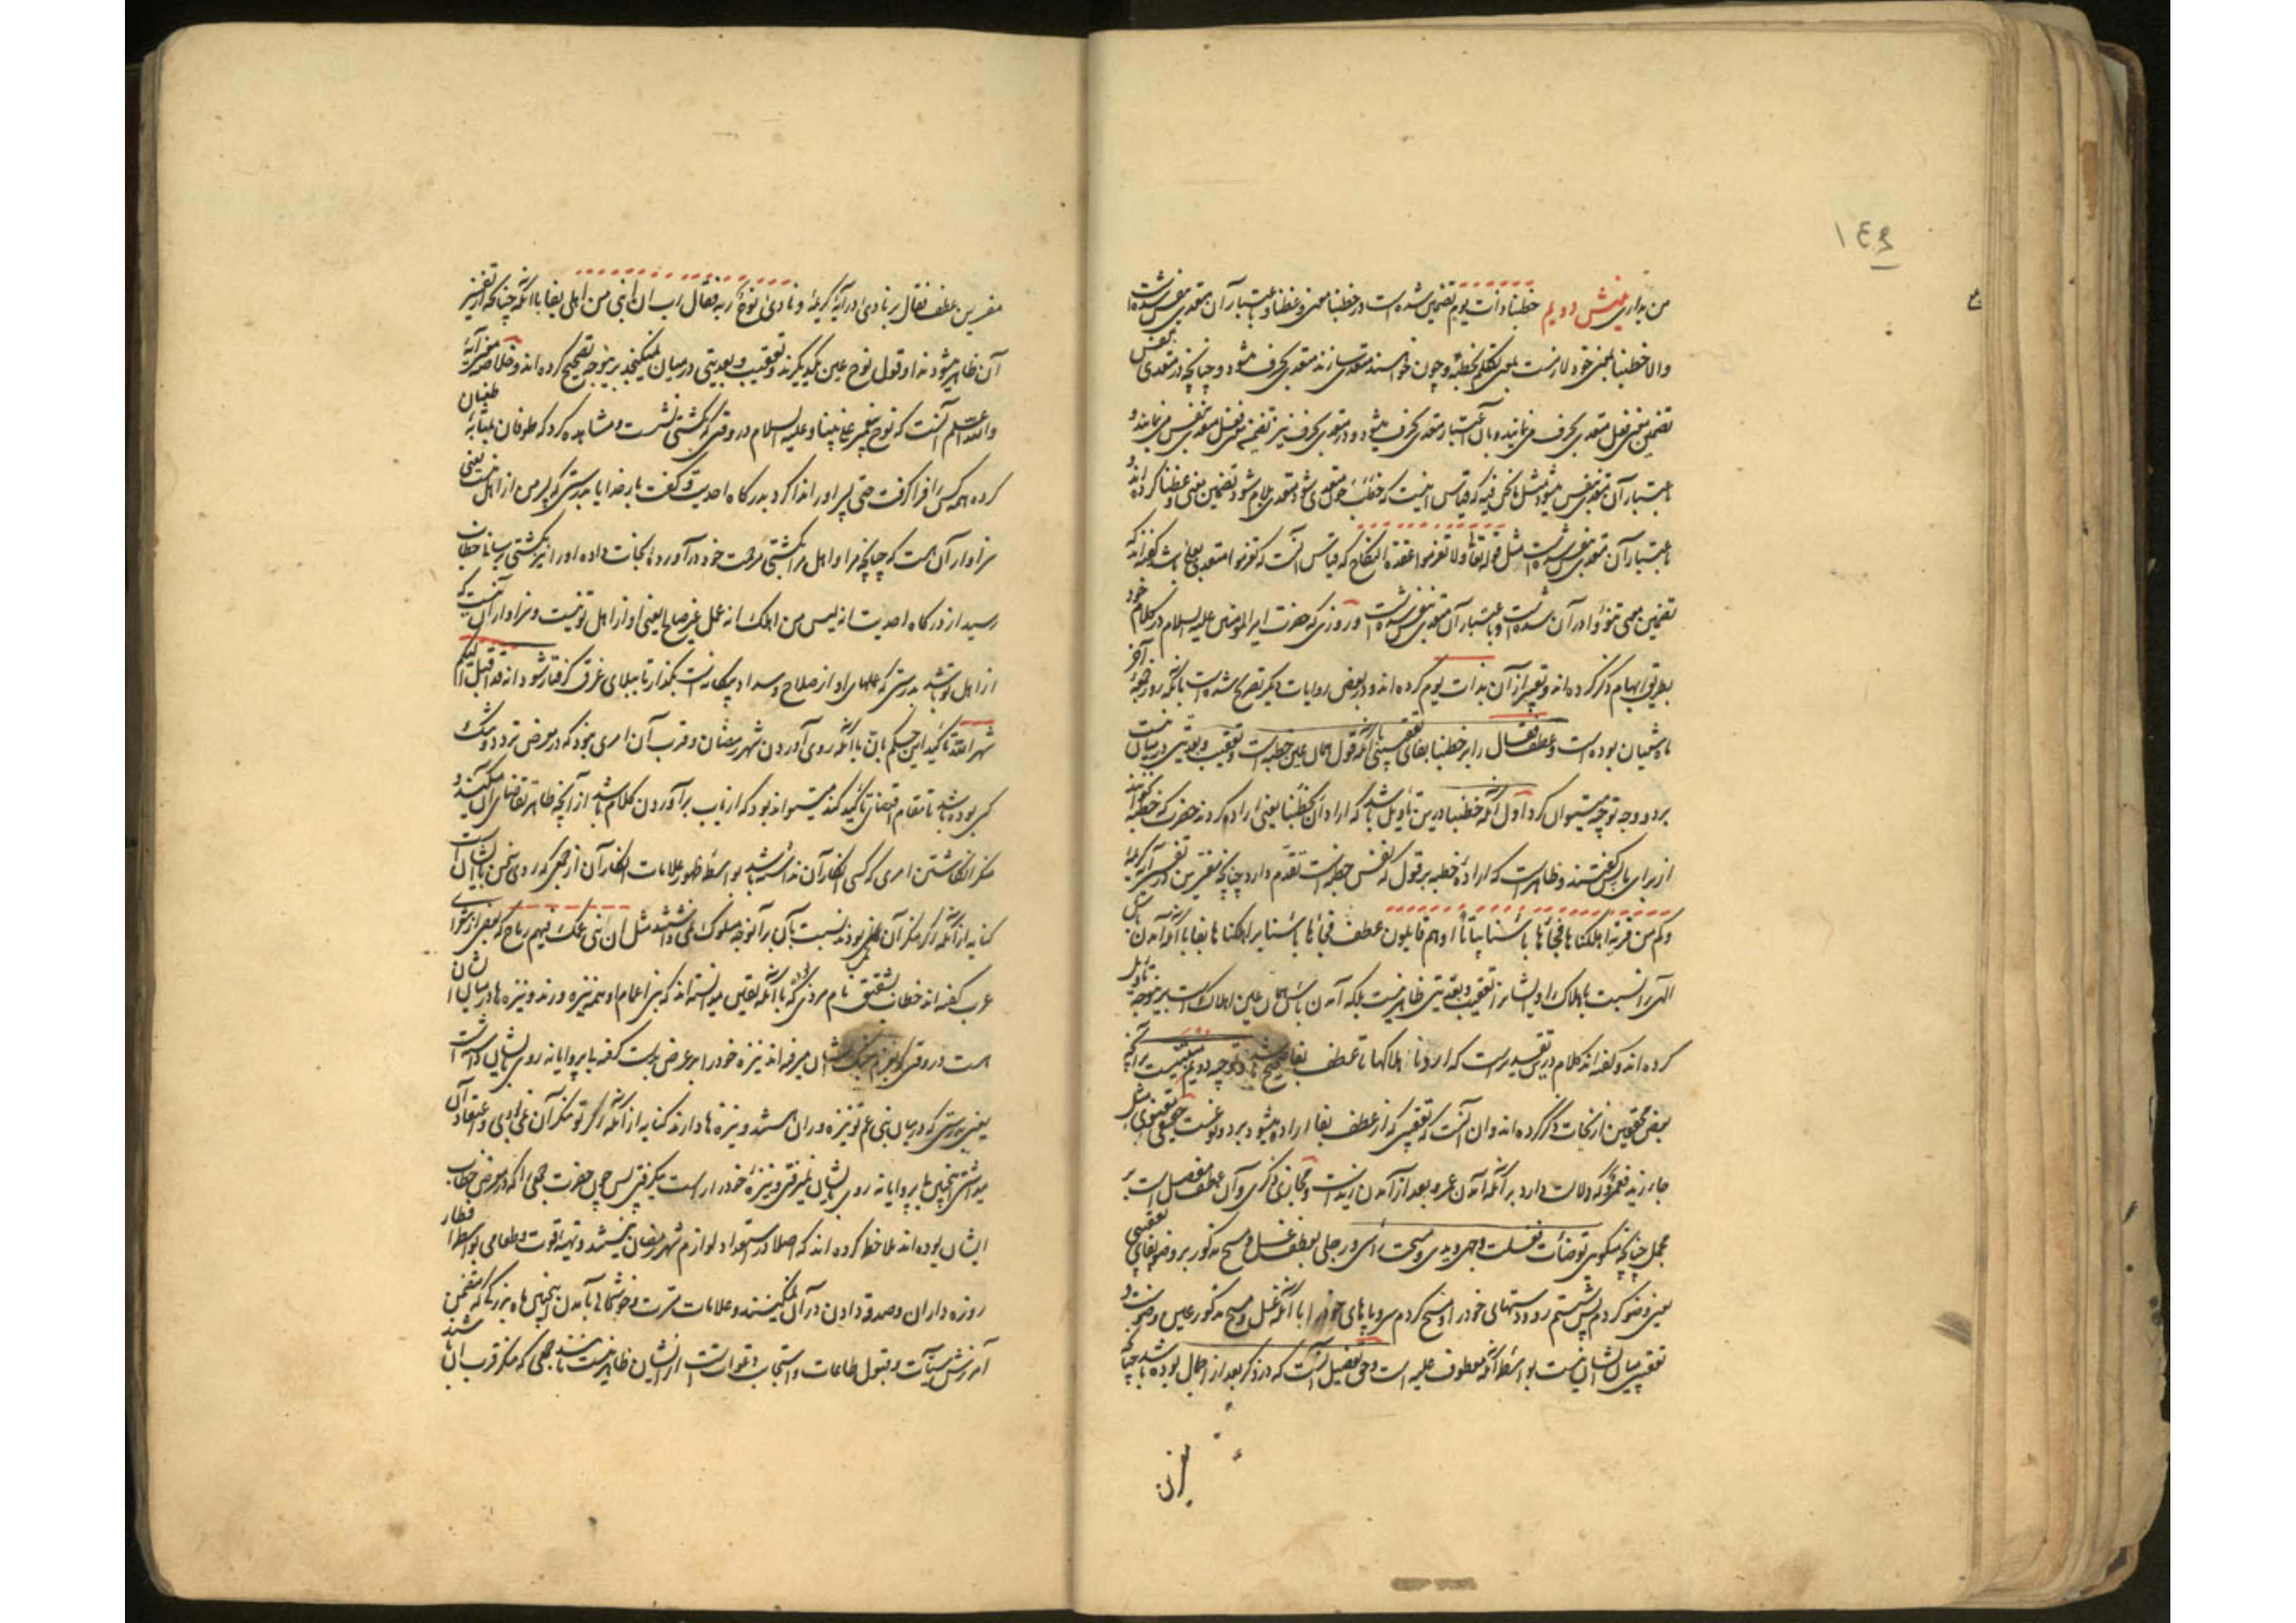 ١٤٩
من بداری بخش دویم خطبنا ذات یوم تضمین شده است در خطبنا معنی وعظنا و باعتبار آن متعدی بنفس شده است
والا خطبنا بمعنی خود لازمست یعنی تکلم بخطبه و چون خواسته متعدی سازند متعدی بحرف میشود و چنانچه در متعدی بنفس
تضمین معنی فعل متعدی بحرف می نمایند و بآن اعتبار متعدی بحرف میشود و در متعدی بحرف نیز تضمین معنی فعل متعدی بنفس می نمایند و
باعتبار آن متعدی بنفس میشود مثل ما نحن فیه که قیاس اینست که خطب چون متعدی شود متعدی بلام شود تضمین معنی وعظنا کرده اند و
باعتبار آن متعدی بنفس شده است مثل قوله تعالی ولا تعزموا عقدة النکاح که قیاس آنست که تعزموا متعدی بعلی باشد گفته اند که
تضمین معنی تنووا در آن شده است و باعتبار آن متعدی بنفس شده است و روزی که حضرت امیر المؤمنین علیه السلام در کلام خود
بطریق ابهام ذکر کرده اند و تعبیر از آن بذات یوم کرده اند و در بعضی روایات دیگر تصریح شده است بآنکه روز جمعه آخر
ماه شعبان بوده است و عطف فقال را بر خطبنا بفای تعقیبی با آنکه قول همان عین خطبه است و تعقیب و بعدیتی در میان نیست
بر دو وجه توجیه میتوان کرد اول آنکه خطبنا درین تأویل باشد که اراد ان یخطبنا یعنی اراده کردند حضرت که خطبه بخوانند
از برای ما پس گفتند و ظاهر است که اراده خطبه بر قول که نفس خطبه است تقدم دارد چنانچه مفسرین در تفسیر آیه کریمه
وکم من قریة اهلکناها فجاءها باسنا بیاتا او هم قایلون عطف فجاءها باسنا بر اهلکناها بفا با آنکه آمدن باس
الهی را نسبت باهلاک را و ایشانرا تعقیب و بعدیتی ظاهر نیست بلکه آمدن باس همان عین اهلاک است برینوجه تأویل
کرده اند و گفته اند کلام درین تقدیر است که اردنا اهلاکها تا عطف بفا صحیح باشد و توجیه دویم مبتنیست بر آنچه
بعضی محققین از نحات ذکر کرده اند و آن آنست که تعقیبی که از عطف بفا اراده میشود بر دو نوعست حقیقی معنوی مثل
جاء زید فعمرو که دلالت دارد بر آنکه آمدن عمرو بعد از آمدن زید است و مجازی ذکری و آن عطف مفصل است بر
مجمل چنانچه میگویی توضأت فغسلت وجهی و یدی و مسحت رأسی و رجلی بعطف غسل و مسح مذکور بر وضو بفای تعقیبی
یعنی وضو کردم پس شستم رو و دستهای خود را و مسح کردم سر و پاهای خود را با آنکه غسل و مسح مذکور عین وضوست و
تعقیبی میان ایشان نیست بواسطه آنکه معطوف علیه است و حق تفصیل آنست که در ذکر بعد از اجمال بوده باشد چنانچه
مفسرین
مفسرین عطف فقال بر نادی در آیه کریمه و نادی نوح ربه فقال رب ان ابنی من اهلی بفا با آنکه چنانکه از تفسیر
آن ظاهر میشود ندا و قول نوح عین یکدیگرند و تعقیب و بعدیتی در میان نمیگنجد برینوجه تصحیح کرده اند و خلاصه مضمون آیه
والله اعلم آنست که نوح پیغمبر علی نبینا و علیه السلام در وقتی که بکشتی نشست و مشاهده کرد که طوفان بمثابه طغیان
کرده همه کس را فرا گرفت حتی پسر او را ندا کرد بدرگاه احدیت و گفت بار خدایا بدرستی که پسر من از اهل منست یعنی
سزاوار آن هست که چنانچه مرا و اهل مرا بکشتی رحمت خود در آورده نجات داده او را نیز بکشتی برسانا خطاب
رسید از درگاه احدیت انه لیس من اهلک انه عمل غیر صالح یعنی او از اهل تو نیست و سزاوار آن نیست که
از اهل تو باشد بدرستی که عملهای او از صلاح و سداد بیگانه است بگذار تا ببلای غرق گرفتار شود انه قد اقبل الیکم
شهر الله تاکید این حکم بان با آنکه روی آوردن شهر رمضان و قرب آن امری نبود که در معرض تردد و شک
کسی بوده باشد تا مقام اقتضای تاکید کند میتواند بود که از باب بر آوردن کلام باشد از آنچه ظاهر تقاضای آن میکند و
منکر انگاشتن امری که کسی انکار آن نداشته باشد بواسطه ظهور علامات انکار آن از جمعی که روی سخن بایشان است
کنایه از آنکه اگر منکر آن نمی بودند نسبت بآن برآنوجه سلوک نمی داشتند مثل ان بنی عمک فیهم رماح که بعضی از شعرای
عرب گفته اند خطاب بشقیق نام مردی که با آنکه یقین میدانسته اند که بنی اعمام او همه نیزه ورند و نیزه ها در میان ایشان
است در وقتی که بعزم جنگ ایشان میرفته اند نیزه خود را بر عرض بدست گرفته بیپروایانه روی بایشان داشت
یعنی بدرستی که در میان بنی عم تو نیزه وران هستند و نیزه ها دارند کنایه از آنکه اگر تو منکر آن نمی بودی و اعتقاد آن
میداشتی اینچنین بیپروایانه روی بایشان نمیرفتی و نیزه خود را راست میگرفتی پس چون حضرت جمعی را که در معرض خطاب
ایشان بوده اند ملاحظه کرده اند که اصلا در استعداد لوازم شهر رمضان نیستند و تهیه قوت و طعامی بواسطه افطار
روزه داران و صدقه دادن در آن نمیکنند و علامات مسرت و خوشحالی بآمدن اینچنین ماه بزرگی که متضمن
آمرزش سیآت و قبول طاعات و استجابت دعوات است از ایشان ظاهر نیست مانند جمعی که منکر قرب آن باشند